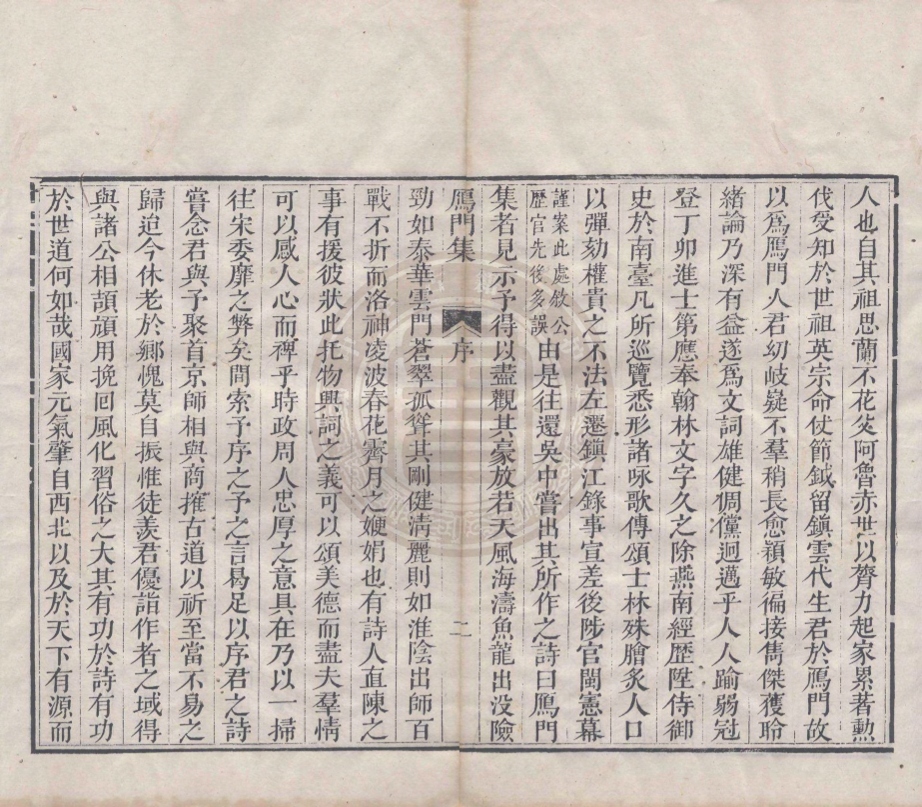 人也自其祖思蘭不花父阿魯赤世以膂力起家累著勲
伐受知於世祖英宗命仗節鉞留鎮雲代生君於鴈門故
以爲鴈門人君幼岐嶷不羣稍長愈穎敏徧接雋傑獲聆
緒論乃深有益遂爲文詞雄健倜儻迥邁乎人人踰弱冠
登丁卯進士第應奉翰林文字久之除燕南經歴陞侍御
史於南臺凡所巡覽悉形諸咏歌傳頌士林殊膾炙人口
以彈劾權貴之不法左遷鎮江錄事宣差後陟官閩憲幕
謹案此處敘公歴官先後多誤由是往還吳中嘗出其所作之詩曰鴈門
集者見示予得以盡觀其豪放若天風海濤魚龍出没險
鴈門集 序 二
勁如泰華雲門蒼翠孤聳其剛健淸麗則如淮陰出師百
戰不折而洛神凌波春花霽月之㛹娟也有詩人直陳之
事有援彼狀此托物興詞之義可以頌美德而盡夫羣情
可以感人心而裨乎時政周人忠厚之意具在乃以一掃
往宋委靡之弊矣間索予序之予之言曷足以序君之詩
嘗念君與予聚首京師相與商搉古道以祈至當不易之
歸迨今休老於鄉愧莫自振惟徒羨君優詣作者之域得
與諸公相頡頏用挽囘風化習俗之大其有功於詩有功
於世道何如哉國家元氣肇自西北以及於天下有源而